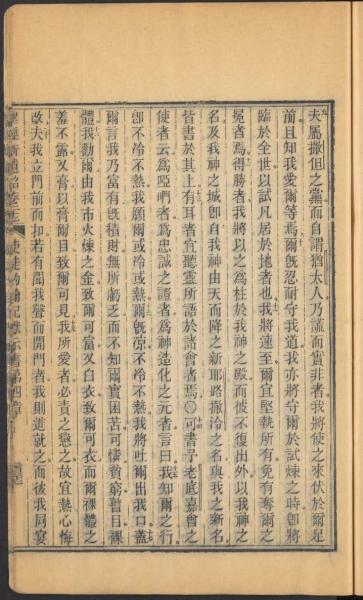 夫屬撒但之黨而自謂猶太人乃謊而實非者我將使之來伏於爾足
前且知我愛爾等焉爾既忍耐守我道我亦將守爾於試煉之時即將
臨於全世以試凡居於地者也我將速至爾宜堅執所有免有奪爾之
冕者焉得勝者我將以之爲柱於我神之殿而彼不復出外以我神之
名及我神之城即自我神由天而降之新耶路撒冷之名與我之新名
皆書於其上有耳者宜聽靈所語於諸會者焉○可書于老底嘉會之
使者云爲啞們者爲忠誠之證者爲神造化之元者言曰我知爾之行
卽不冷不熱我願爾或冷或熱爾既溫不冷不熱我將吐爾出我口蓋
爾言我乃富有既積財無所虧乏而不知爾實困苦可悽貧窮瞽目裸
體我勸爾由我市火煉之金致爾可富又白衣致爾可衣而爾裸體之
羞不露又膏以膏爾目致爾可見我所愛者必責之懲之故宜熱心悔
改夫我立門前而扣若有聞我聲而開門者我則進就之而彼我同宴
聖經新遺詔卷 使徒約翰 示書第四章